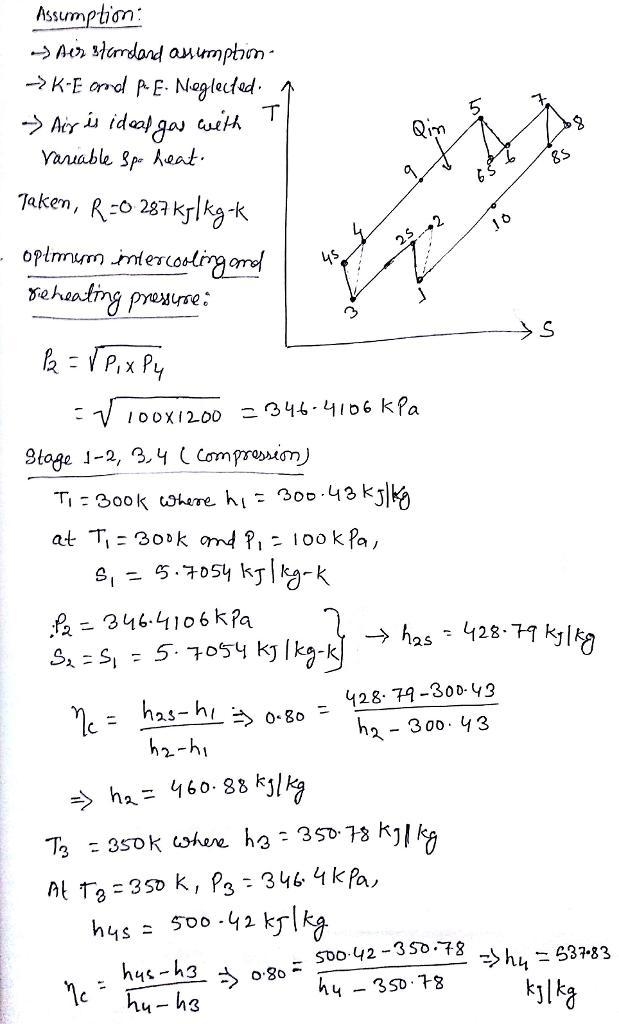 Assumption:
→ Air standard assumption.
→ K-E and P.E. Neglected.
→ Air is ideal gas with
Variable Sp. heat.
Taken, R=0.287 kJ/kg-K
optimum intercooling and
reheating pressure:
P2 = √P1×P4
= √100×1200 = 346.4106 kPa
Stage 1-2, 3,4 (Compression)
T1 = 300K where h1 = 300.43 kJ/kg
at T1 = 300K and P1 = 100 kPa,
S1 = 5.7054 kJ/kg-K
P2 = 346.4106 kPa
S2 = S1 = 5.7054 kJ/kg-K } → h2s = 428.79 kJ/kg
ηc = h2s-h1 / h2-h1 ⇒ 0.80 = 428.79-300.43 / h2 - 300.43
⇒ h2 = 460.88 kJ/kg
T3 = 350K where h3 = 350.78 kJ/kg
At T3 = 350 K, P3 = 346.4 kPa,
h4s = 500.42 kJ/kg
ηc = h4s-h3 / h4-h3 ⇒ 0.80 = 500.42-350.78 / h4 - 350.78 ⇒ h4 = 537.83
kJ/kg
T
S
Qin
1
2
2s
3
4
4s
5
6
6s
7
8
8s
9
10